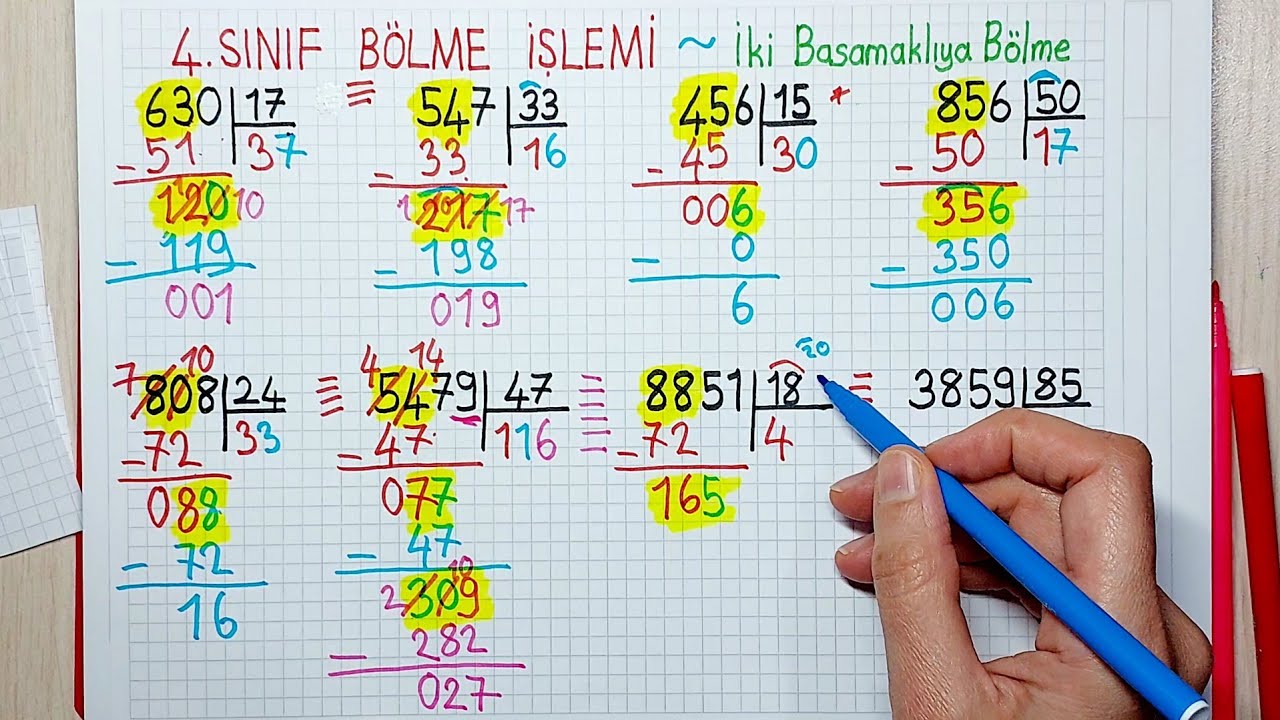 4. SINIF BÖLME İŞLEMİ ~ İki Basamaklıya Bölme
630 17 ≡ 547 33 456 15 * 856 50
- 51 37 - 33 16 - 45 30 - 50 17
120 10 1 217 17 006 356
- 119 - 198 - 0 - 350
001 019 6 006
7 10 4 14 20
808 24 ≡ 5479 47 8851 18 ≡ 3859 85
- 72 33 - 47 116 - 72 4
088 077 165
- 72 - 47
16 2 10
309
- 282
027